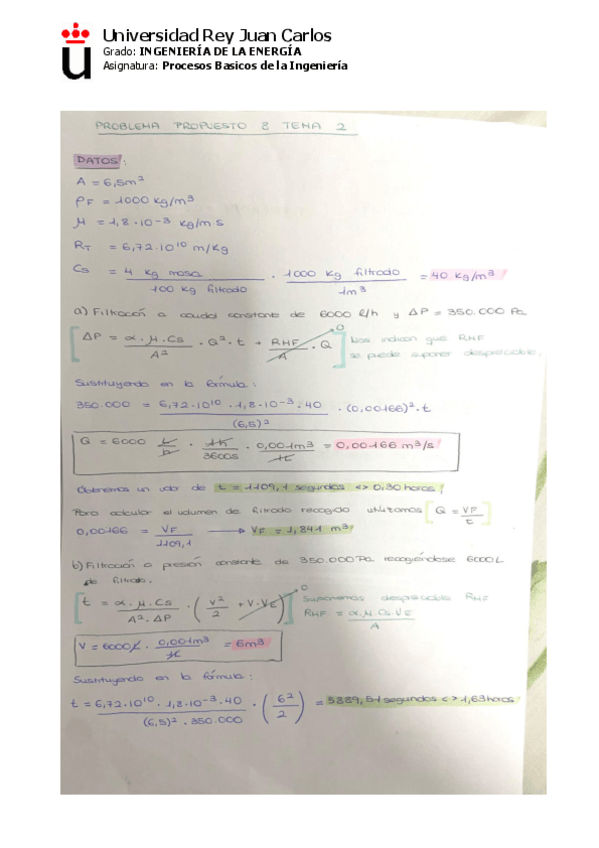 Universidad Rey Juan Carlos
Grado: INGENIERÍA DE LA ENERGÍA
Asignatura: Procesos Basicos de la Ingeniería
PROBLEMA PROPUESTO 8 TEMA 2
DATOS:
A = 6,5m²
ρF = 1000 kg/m³
μ = 1,8·10⁻³ kg/m·s
RT = 6,72·10¹⁰ m/kg
Cs = 4 kg masa / 100 kg filtrado · 1000 kg filtrado / 1m³ = 40 kg/m³
a) Filtración a caudal constante de 6000 l/h y ΔP = 350.000 Pa
[ΔP = α·μ·Cs / A² · Q²·t + RHF / A · Q] 0 Nos indican que RHF
se puede suponer despreciable.
Sustituyendo en la fórmula:
350.000 = 6,72·10¹⁰·1,8·10⁻³·40 / (6,5)² · (0,00166)²·t
Q = 6000 l/h · 1h / 3600s · 0,001m³ / 1l = 0,00166 m³/s
Obtenemos un valor de t = 1109,1 segundos <> 0,30 horas
Para calcular el volumen de filtrado recogido utilizamos [Q = VF / t]
0,00166 = VF / 1109,1 → VF = 1,841 m³
b) Filtración a presión constante de 350.000 Pa recogiéndose 6000L
de filtrado.
[t = α·μ·Cs / A²·ΔP · (V² / 2 + V·VE)] 0 Suponemos despreciable RHF
RHF = α·μ·Cs·VE / A
V = 6000l · 0,001m³ / 1l = 6m³
Sustituyendo en la fórmula:
t = 6,72·10¹⁰·1,8·10⁻³·40 / (6,5)²·350.000 · (6² / 2) = 5889,51 segundos <> 1,63 horas